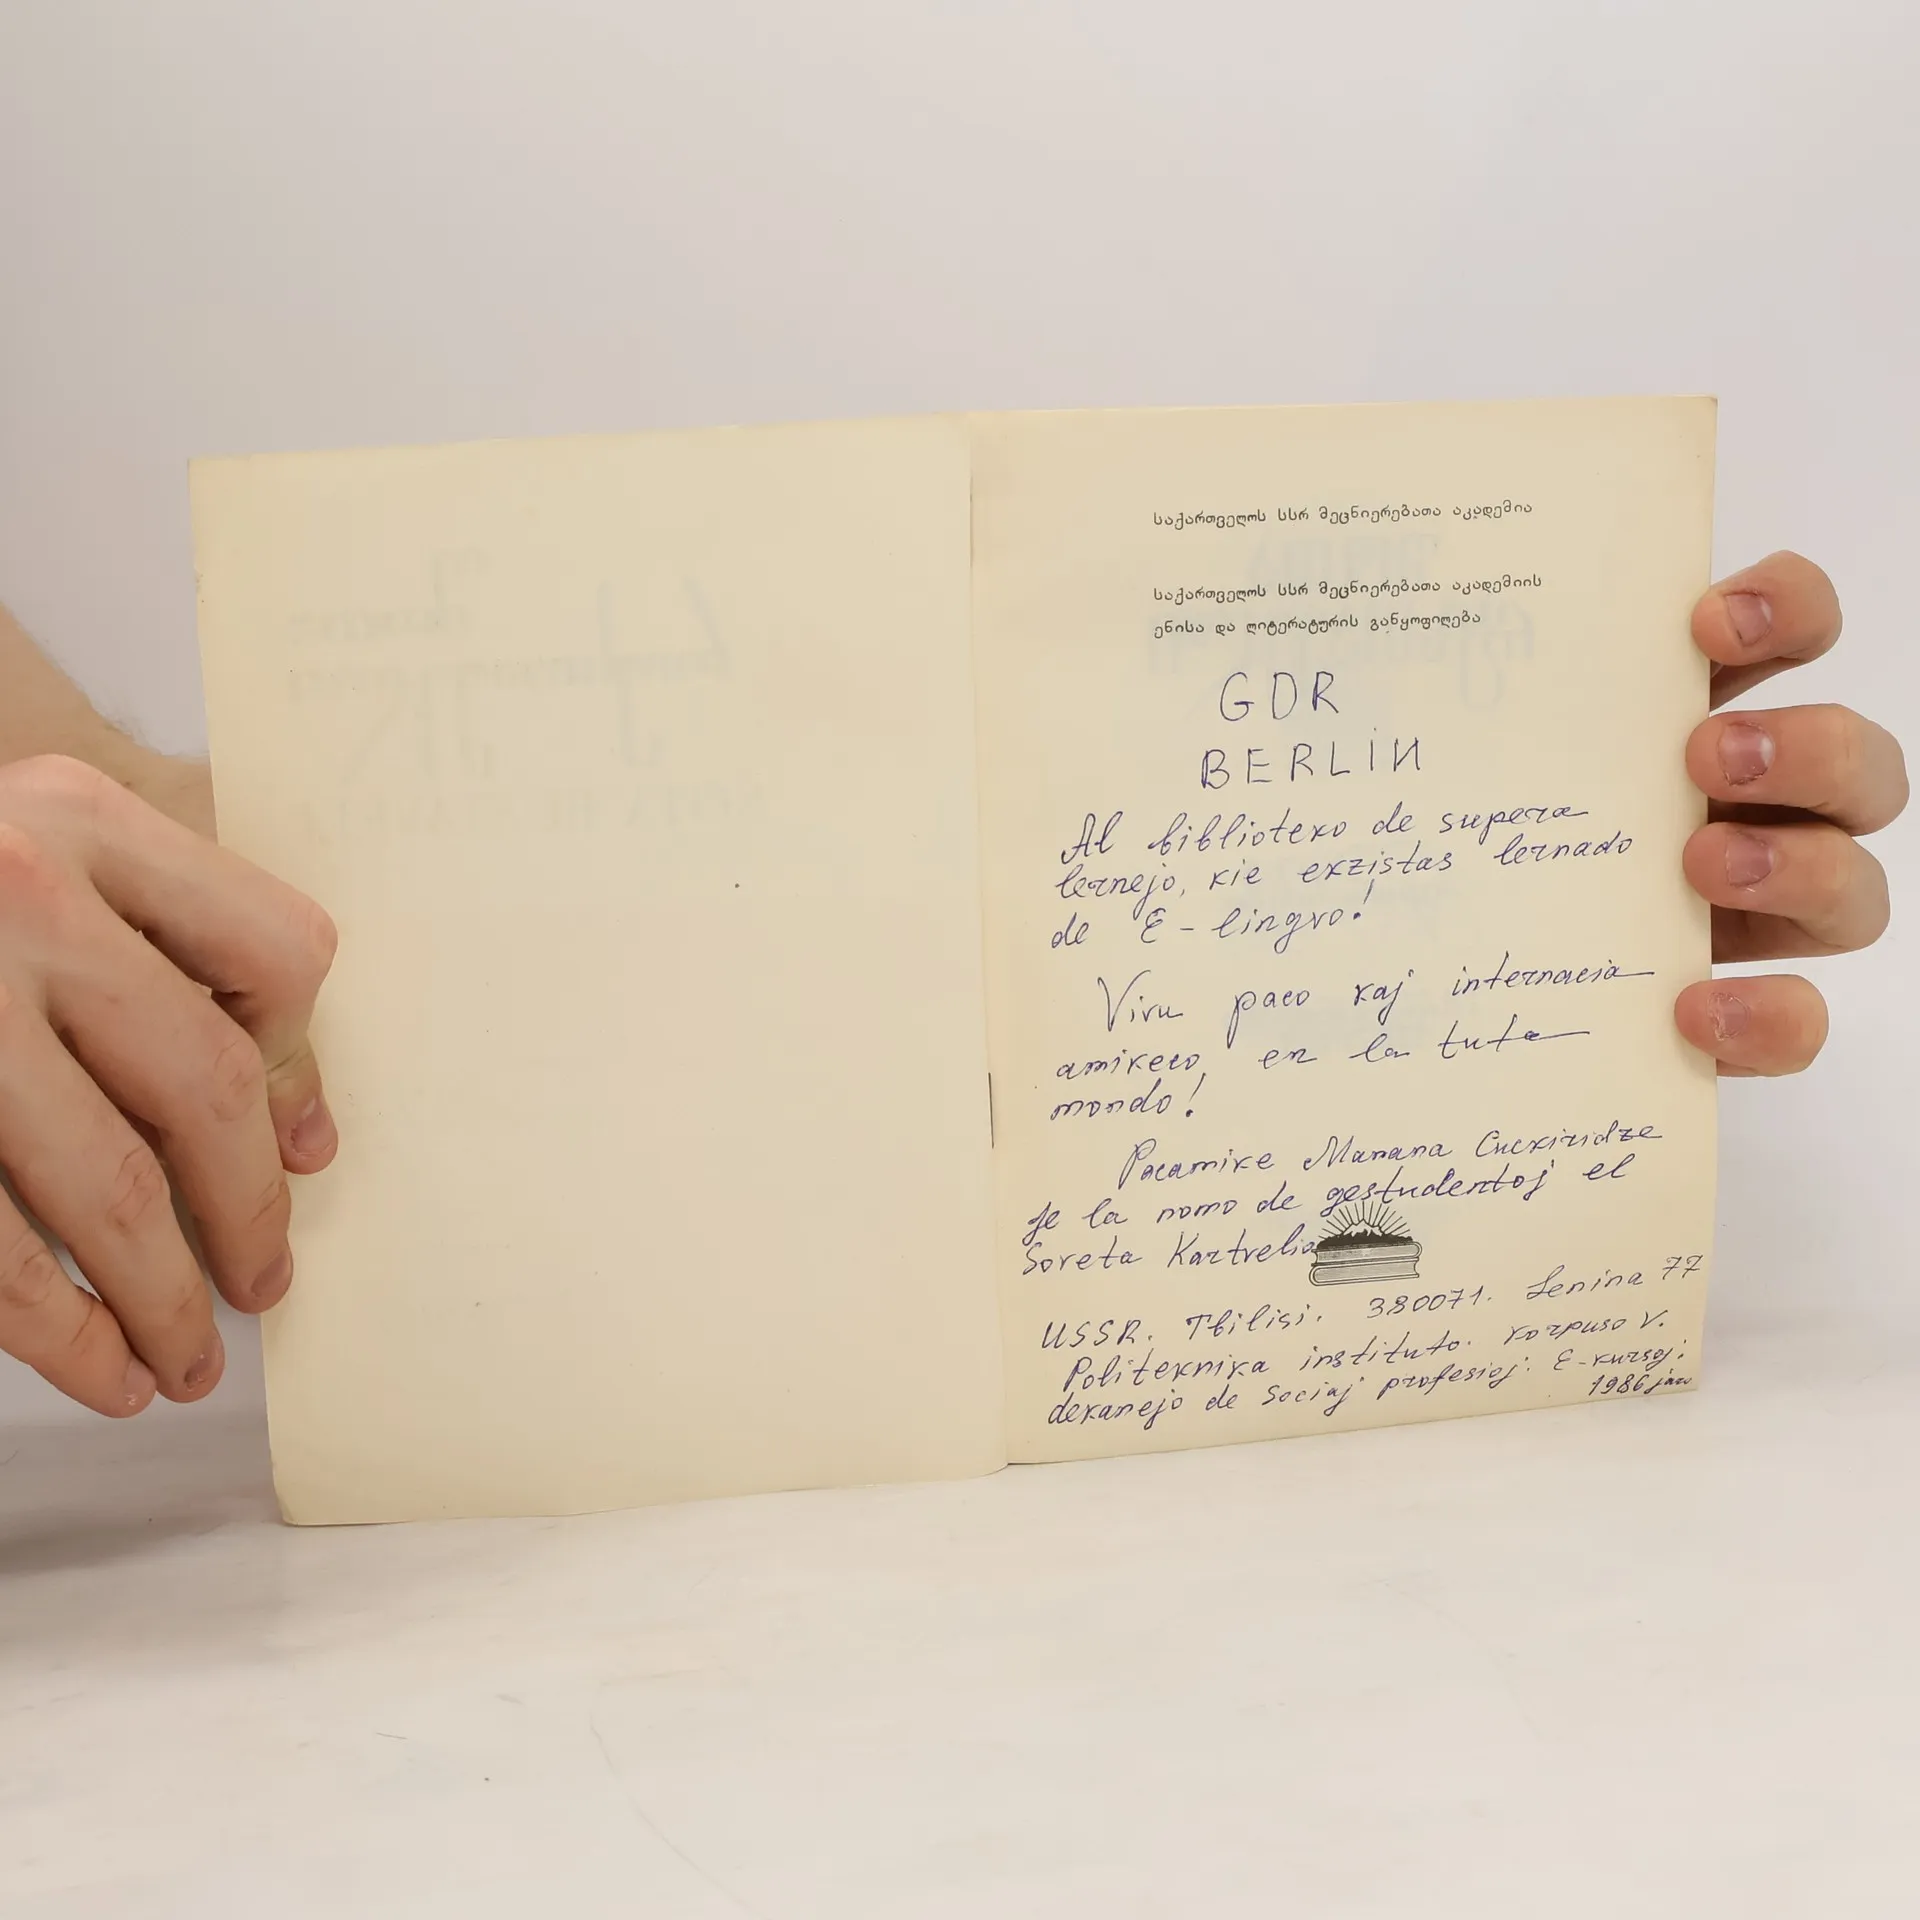 საქართველოს სსრ მეცნიერებათა აკადემია
საქართველოს სსრ მეცნიერებათა აკადემიის
ენისა და ლიტერატურის განყოფილება
GDR
BERLIN
Al biblioteko de supera
lernejo, kie ekzistas lernado
de E-lingvo!
Vivu paco kaj internacia
amikeco en la tuta
mondo!
Pacamike Manana Cuckiridze
je la nomo de gestudentoj el
Soveta Kartvelio
USSR. Tbilisi. 380071. Lenina 77
Politeknika instituto. korpuso V.
dekanejo de Sociaj profesioj. E-kursoj.
1986 jaro